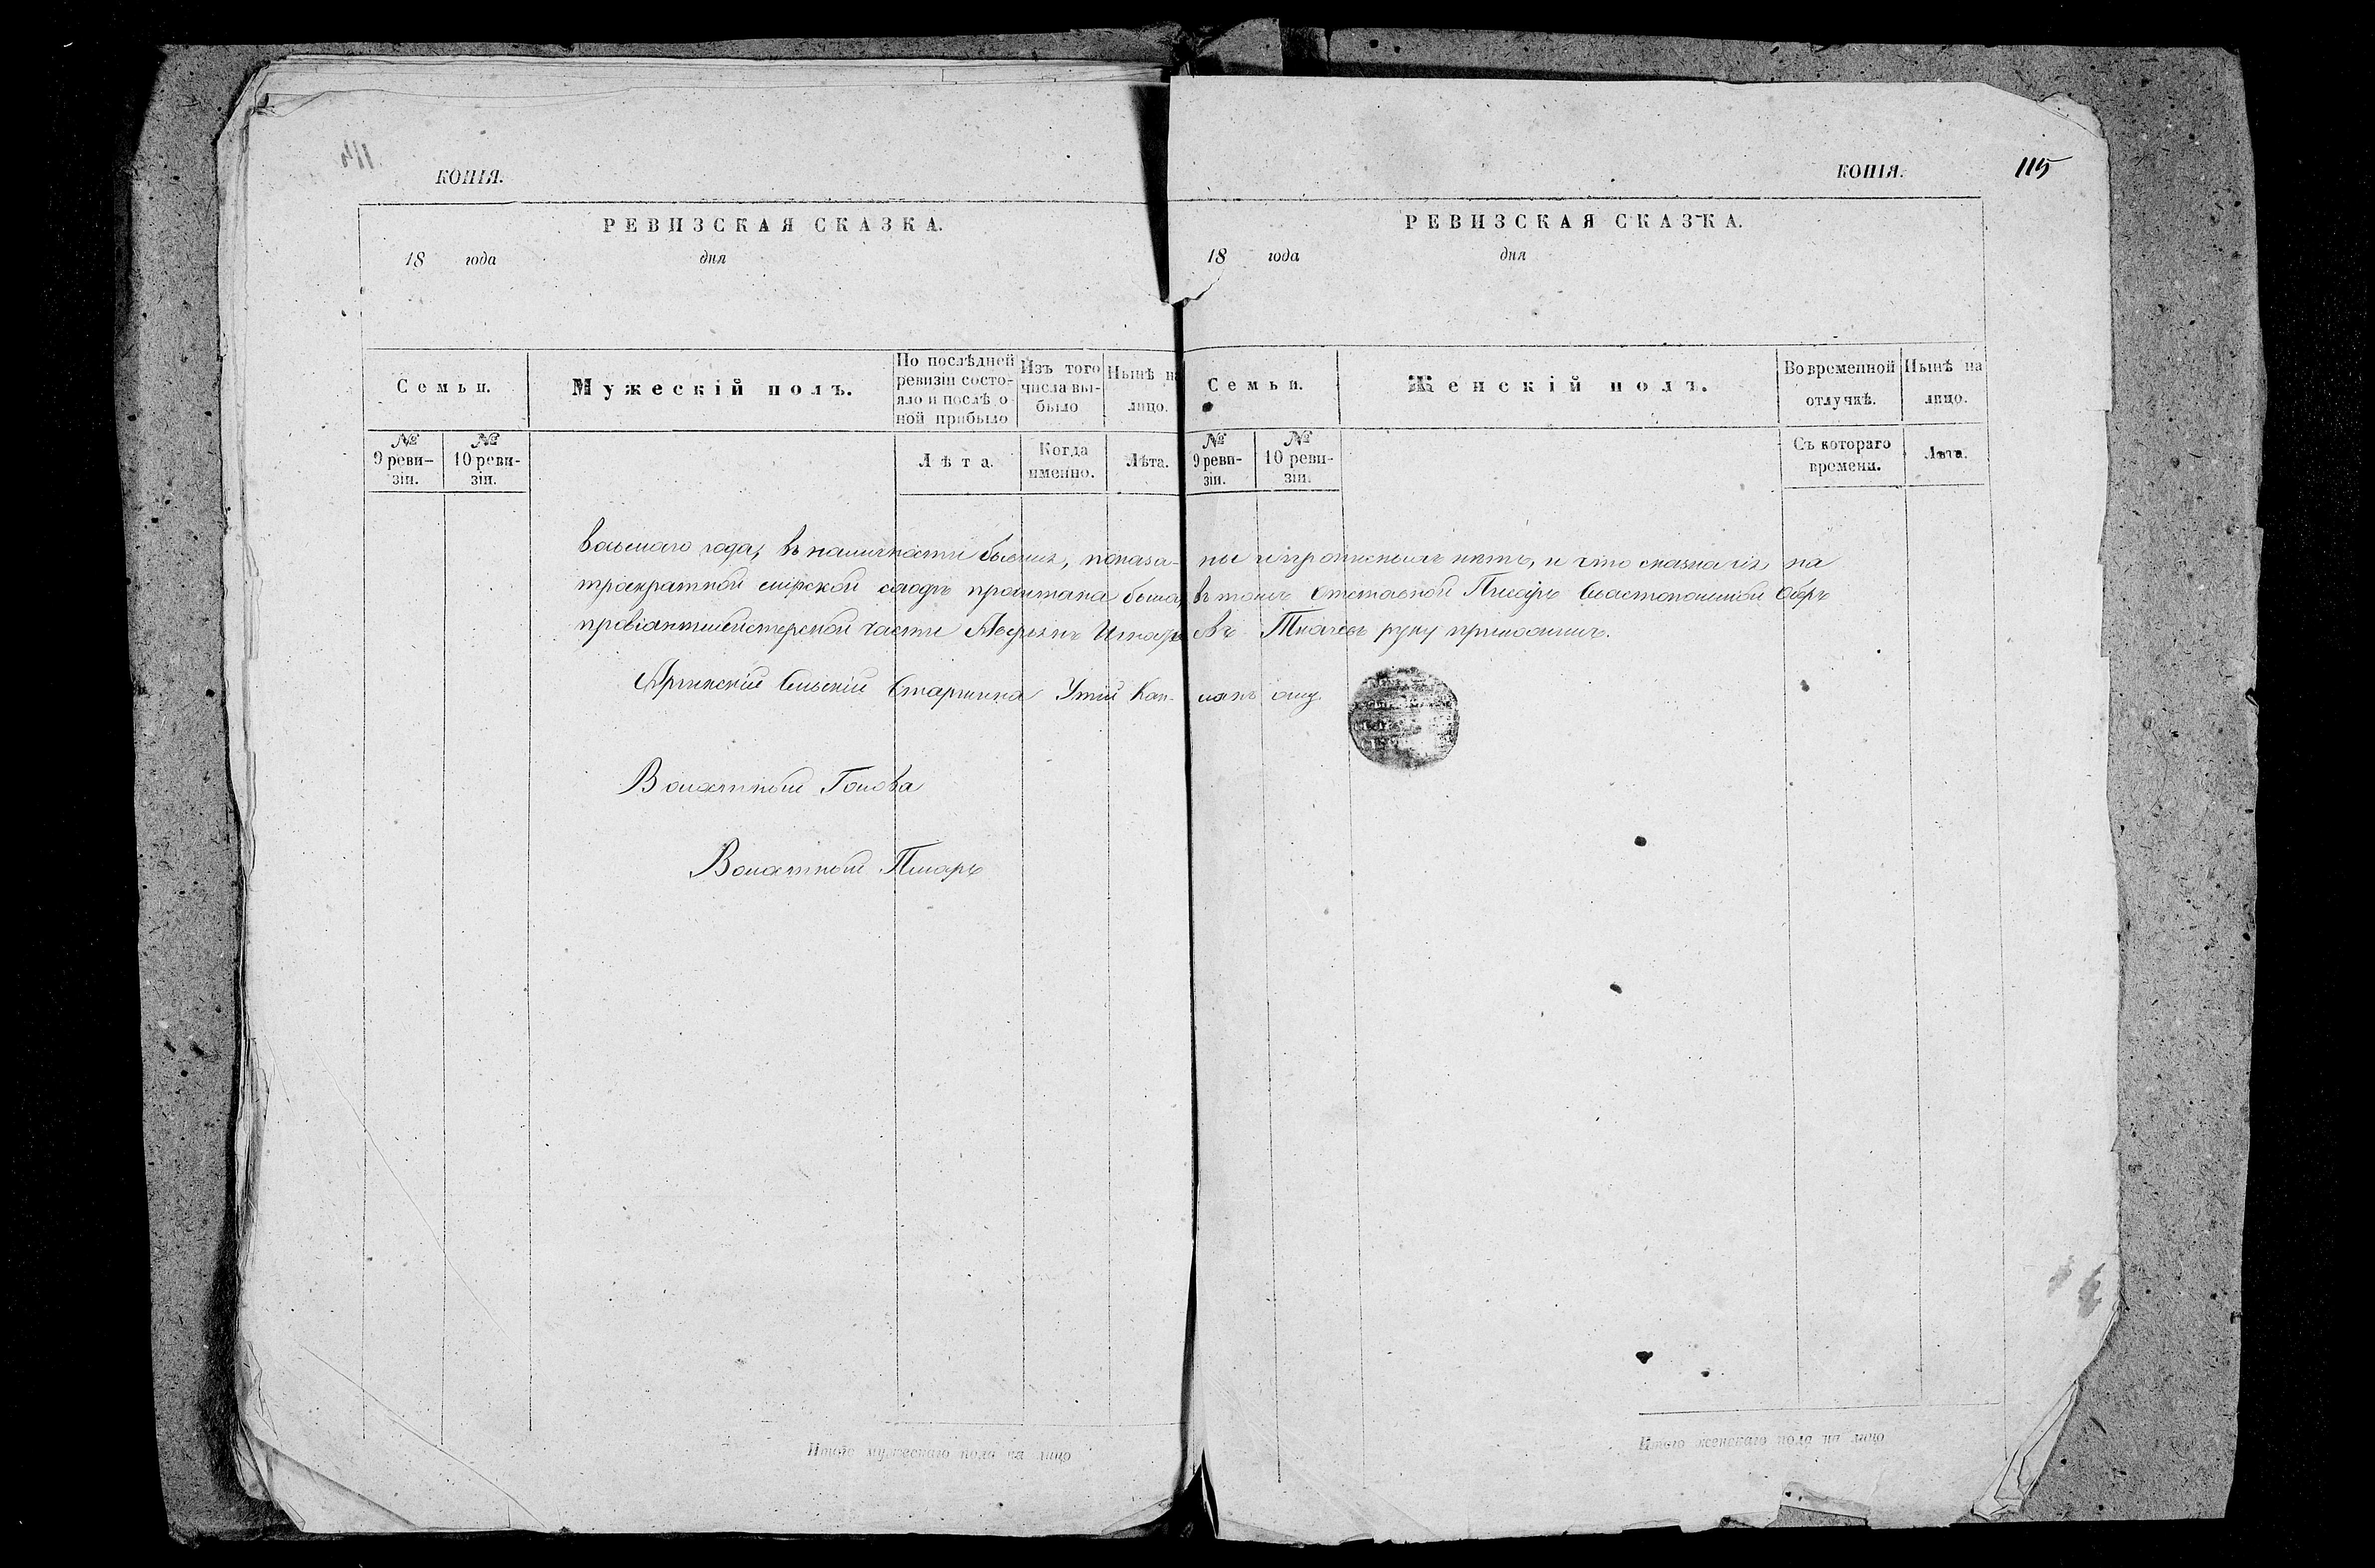 КОПІЯ.
РЕВИЗСКАЯ СКАЗКА.
18 года дня
Семьи.
Мужескій полъ.
По послѣдней
ревизіи состо-
яло и послѣ о-
ной прибыло
Изъ того
числа вы-
было
Нынѣ н
лицо.
№
9 реви-
зіи.
№
10 реви-
зіи.
Лѣта.
Когда
именно.
Лѣта.
КОПІЯ.
115
РЕВИЗСКАЯ СКАЗКА.
18 года дня
Семьи.
Женскій полъ.
Во временной
отлучкѣ.
Нынѣ на
лицо.
№
9 реви-
зіи.
№
10 реви-
зіи.
Съ котораго
времени.
Лѣта.
восьмаго года, въ наличности бывшія, показа- ны и прописныхъ нѣтъ, и что сказка сія, на
троекратной мірской сходѣ прочитана была, въ томъ отставной Писарь Севастопольской Оберъ
провіантмейстерской части Руку приложилъ.
Сельскій Старшина Кап-
Волостный Голова
Волостный Писарь
Итого мужескаго пола на лицо
Итого женскаго пола на лицо